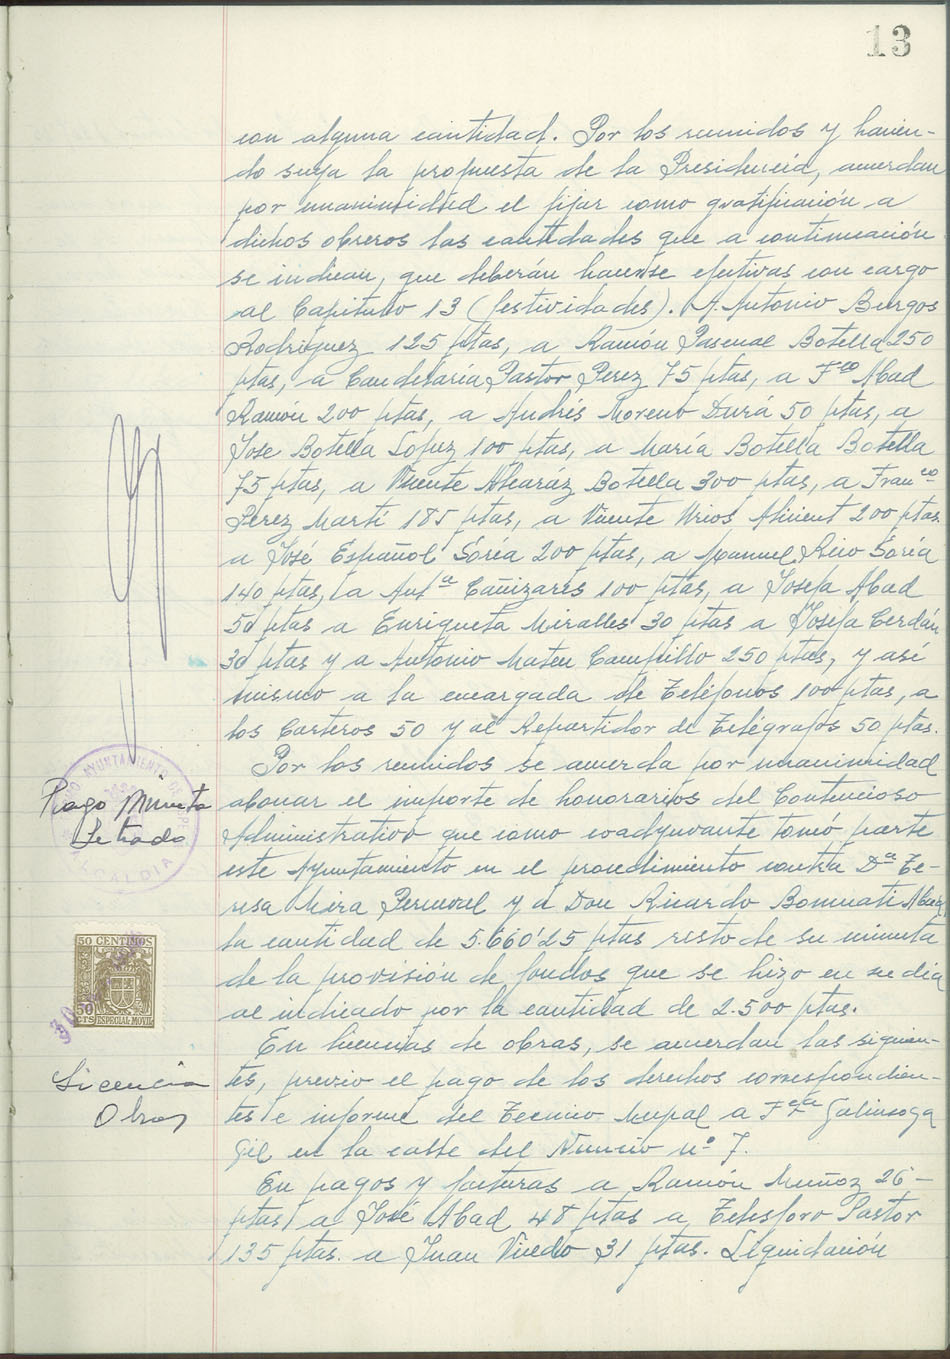 13
con alguna cantidad. Por los reunidos y hacien-
do suya la propuesta de la Presidencia, acuerdan
por unanimidad el fijar como gratificación a
dichos obreros las cantidades que a continuación
se indican, que deberán hacerse efectivas con cargo
al Capitulo 13 (festividades). A Antonio Burgos
Rodriguez 125 ptas, a Ramón Pascual Botella 250
ptas, a Candelaria Pastor Perez 75 ptas, a Fco Abad
Ramón 200 ptas, a Andrés Moreno Durá 50 ptas, a
Jose Botella López 100 ptas, a María Botella Botella
75 ptas, a Vicente Alcaráz Botella 300 ptas, a Franco
Perez Martí 185 ptas, a Vicente Urios Aliñent 200 ptas.
a José Español Soria 200 ptas, a Manuel Rico Soria
140 ptas, a Anta Cañizares 100 ptas, a Josefa Abad
50 ptas a Enriqueta Miralles 30 ptas a Josefa Cerdán
30 ptas y a Antonio Mateu Campillo 250 ptas, y asi
mismo a la encargada de Teléfonos 100 ptas, a
los Carteros 50 y al Repartidor de Telégrafos 50 ptas.
Por los reunidos se acuerda por unanimidad
Pago Minuta
Letrado
abonar el importe de honorarios del Contencioso
Administrativo que como coadyuvante tomó parte
este Ayuntamiento en el procedimiento contra Dª Te-
resa Mira Perceval y a Don Ricardo Bonmati
la cantidad de 5.660'25 ptas resto de su minuta
de la provisión de fondos que se hizo en su dia
al indicado por la cantidad de 2.500 ptas.
AYUNTAMIENTO DE
ALCALDIA
50 CENTIMOS
50
CTS ESPECIAL MOVIL
En licencias de obras, se acuerdan las siguien-
Licencia
Obras
tes, previo el pago de los derechos correspondien-
tes e informe del Tecnico Mupal a Galinsoga
Gil en la calle del Nuncio nº 7.
En pagos y facturas a Ramón Muñoz 26-
ptas a José Abad 48 ptas a Telesforo Pastor
135 ptas. a Juan Vicedo 31 ptas. Liquidación